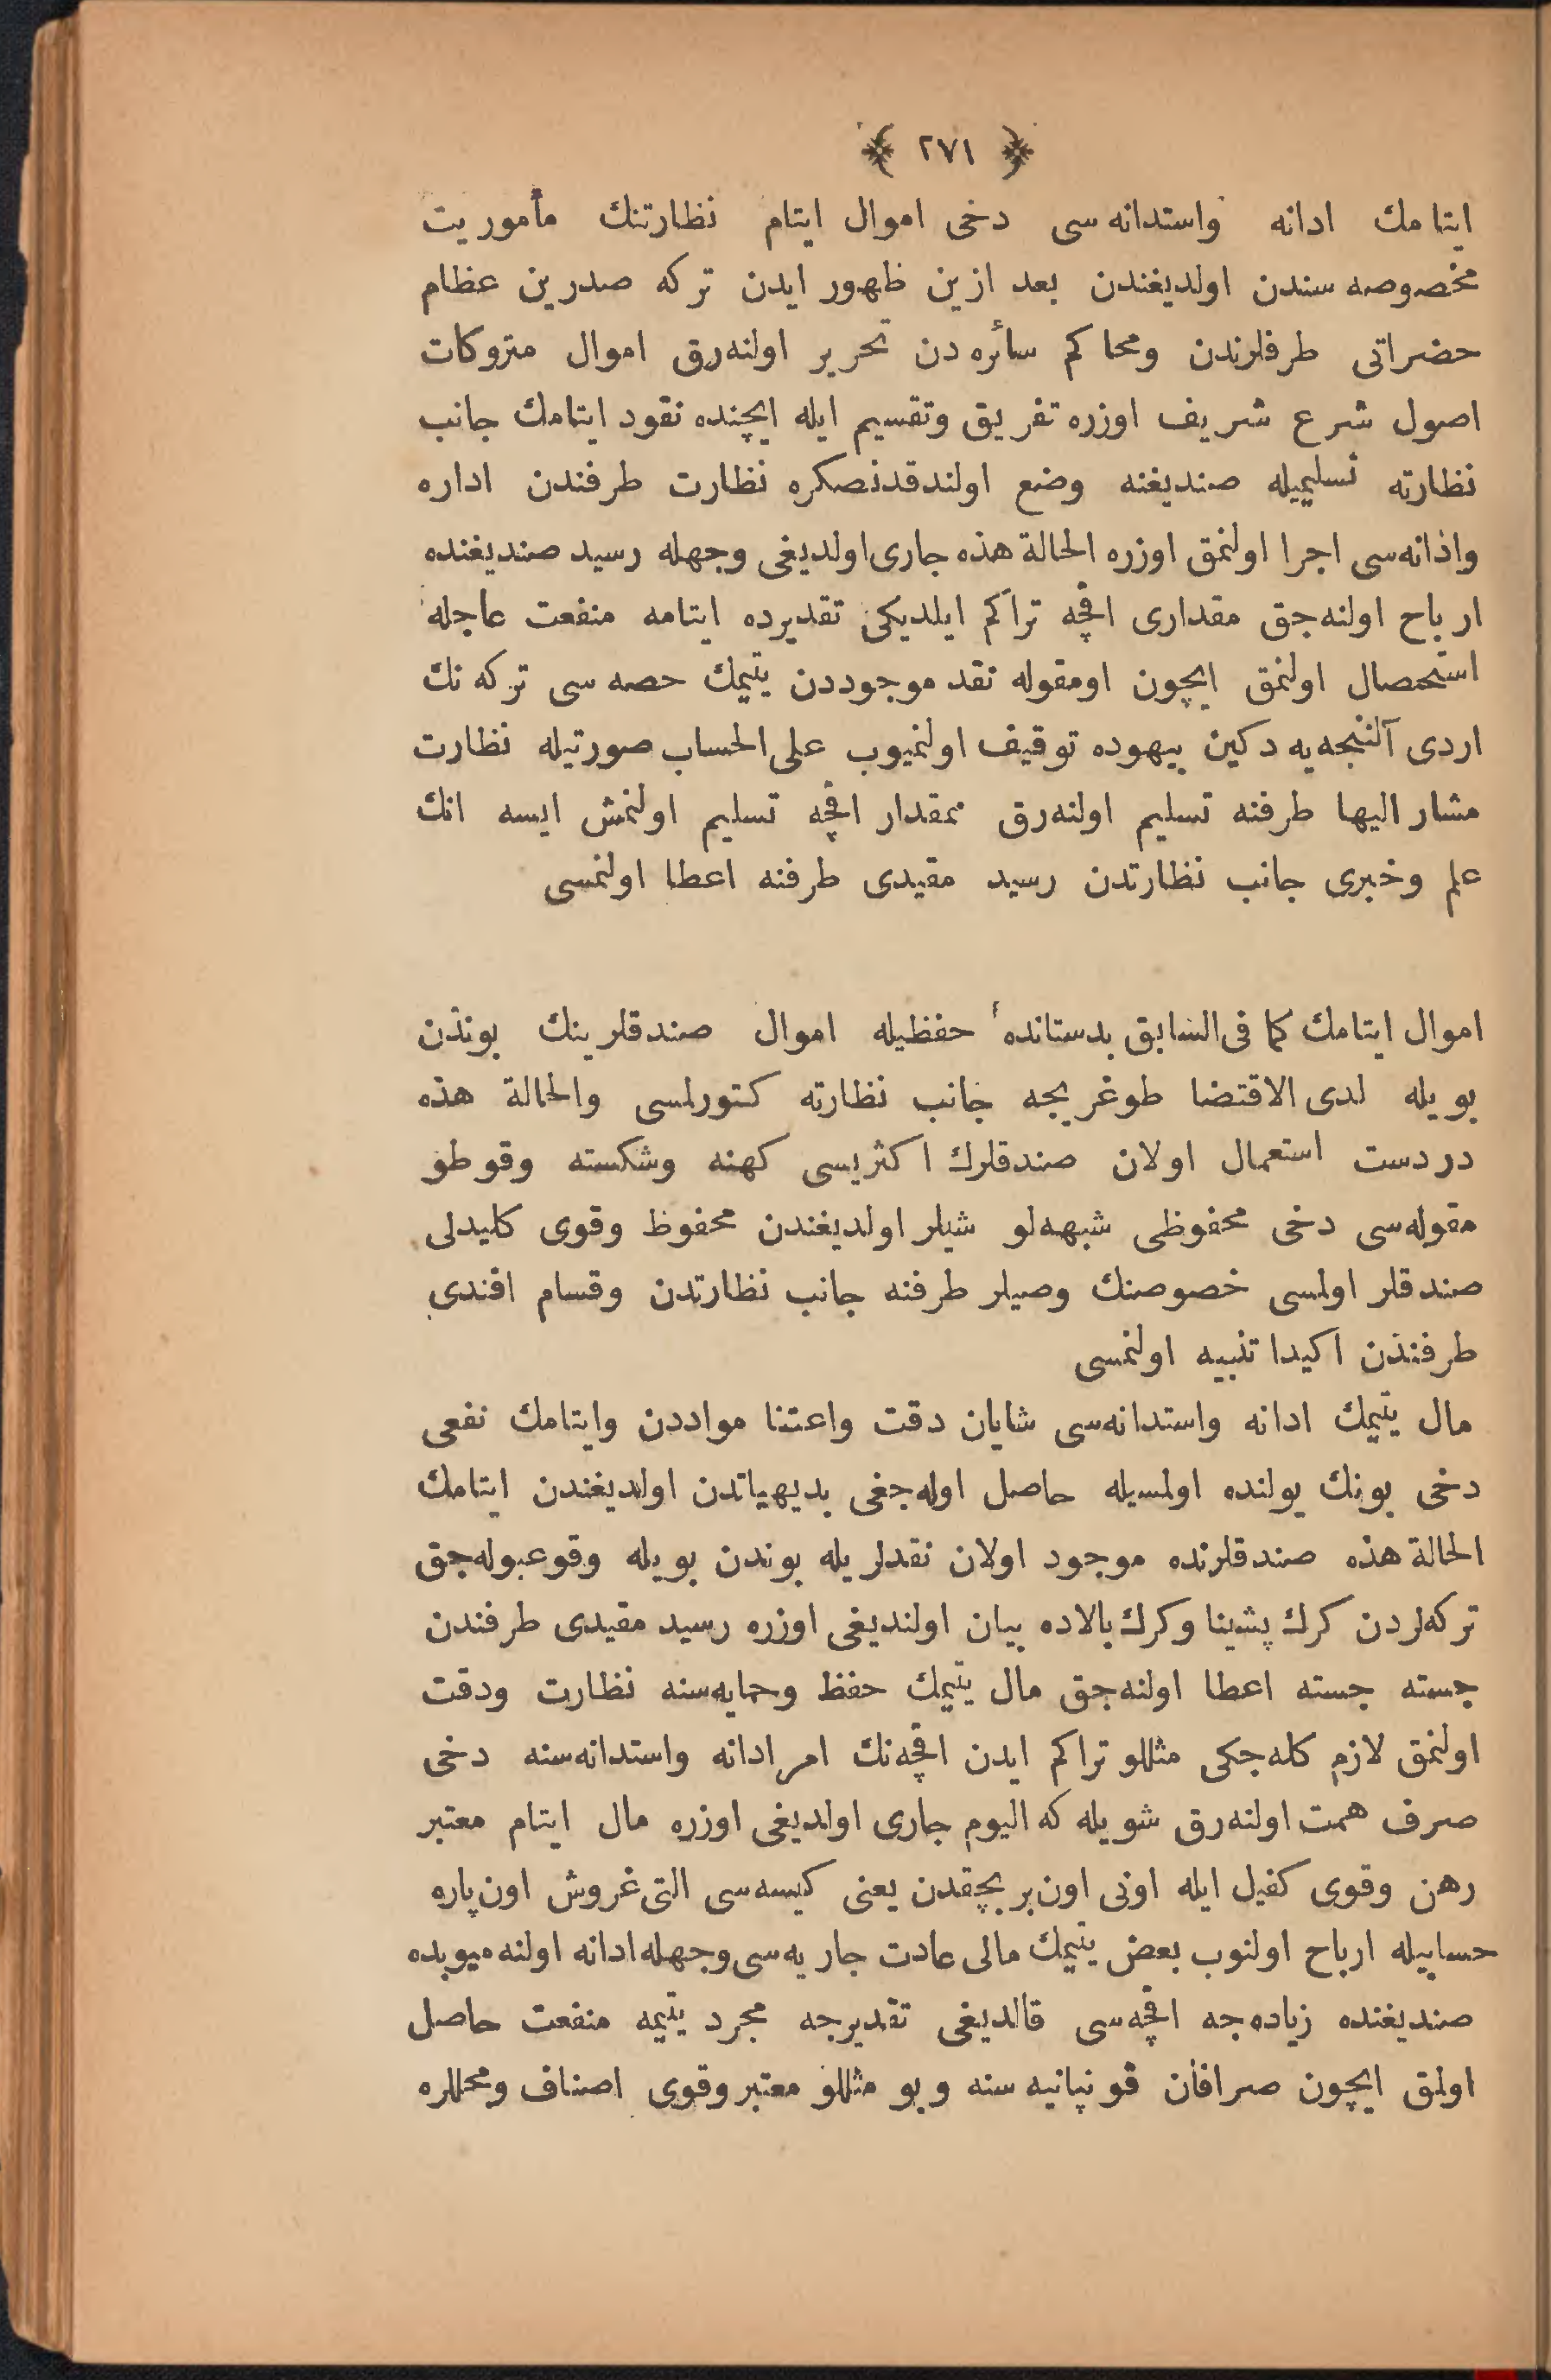 ﴿ ٢٧١ ﴾
ایتامك ادانه واستدانه‌سی دخی اموال ایتام نظارتنك مأموریت
مخصوصه سندن اولدیغندن بعد ازین ظهور ایدن ترکه صدرین عظام
حضراتی طرفلرندن ومحاکم سائره دن تحریر اولنه‌رق اموال متروکات
اصول شرع شریف اوزره تفریق وتقسیم ایله ایچنده نقود ایتامك جانب
نظارته تسلیمیله صندیغنه وضع اولندقدنصکره نظارت طرفندن اداره
واذانه‌سی اجرا اولنمق اوزره الحالة هذه جاری اولدیغی وجهله رسید صندیغنده
ارباح اولنه‌جق مقداری اقچه تراکم ایلدیکی تقدیرده ایتامه منفعت عاجله
استحصال اولنمق ایچون اومقوله نقد موجوددن یتیمك حصه سی ترکه نك
اردی آلنجه‌یه دکین بیهوده توقیف اولنمیوب علی الحساب صورتیله نظارت
مشار الیها طرفنه تسلیم اولنه‌رق نمقدار اقچه تسلیم اولنمش ایسه انك
علم وخبری جانب نظارتدن رسید مقیدی طرفنه اعطا اولنمسی
اموال ایتامك کما فی السابق بدستانده حفظیله اموال صندقلرینك بوندن
بویله لدی الاقتضا طوغریجه جانب نظارته کتورلمسی والحالة هذه
دردست استعمال اولان صندقلرك اکثریسی کهنه وشکسته وقوطو
مقوله‌سی دخی محفوظی شبهه‌لو شیلر اولدیغندن محفوظ وقوی کلیدلی
صندقلر اولمسی خصوصنك وصیلر طرفنه جانب نظارتدن وقسام افندی
طرفندن اکیدا تنبیه اولنمسی
مال یتیمك ادانه واستدانه‌سی شایان دقت واعتنا موادد‌ن وایتامك نفعی
دخی بونك یولنده اولمسیله حاصل اوله‌جغی بدیهیاتدن اولدیغندن ایتامك
الحالة هذه صندقلرنده موجود اولان نقدلریله بوندن بویله وقوعبوله‌جق
ترکه‌لردن کرك پشینا وکرك بالاده بیان اولندیغی اوزره رسید مقیدی طرفندن
جسته جسته اعطا اولنه‌جق مال یتیمك حفظ وحمایه‌سنه نظارت ودقت
اولنمق لازم کله‌جکی مثللو تراکم ایدن اقچه‌نك امر ادانه واستدانه‌سنه دخی
صرف همت اولنه‌رق شویله که الیوم جاری اولدیغی اوزره مال ایتام معتبر
رهن وقوی کفیل ایله اونی اون‌بر بچقدن یعنی کیسه‌سی التی غروش اون پاره
حسابیله ارباح اولنوب بعض یتیمك مالی عادت جاریه‌سی وجهله ادانه اولنه‌میوبده
صندیغنده زیاده‌جه اقچه‌سی قالدیغی تقدیرجه مجرد یتیمه منفعت حاصل
اولمق ایچون صرافان قونپانیه سنه وبو مثللو معتبر وقوی اصناف ومحللره